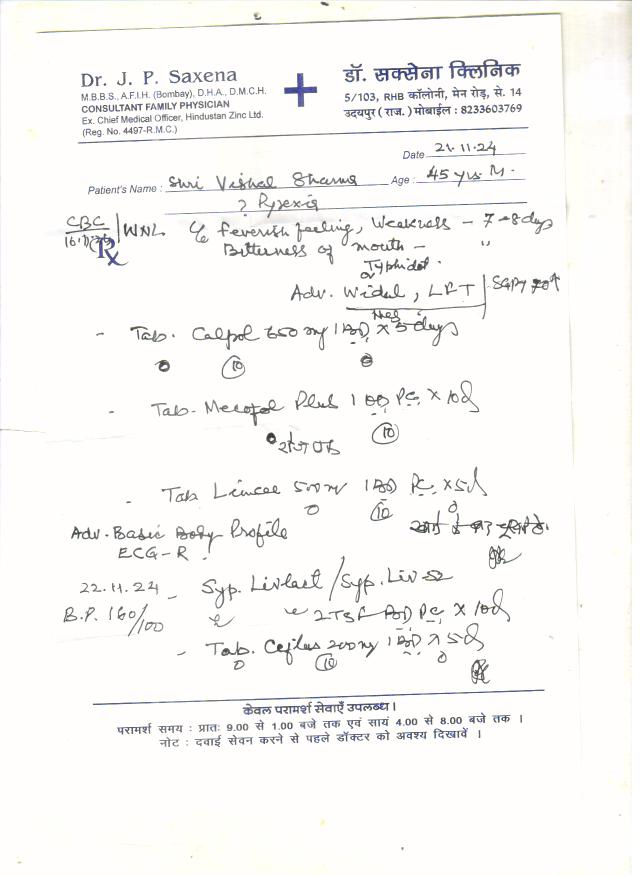 Dr. J. P. Saxena
M.B.B.S., A.F.I.H. (Bombay), D.H.A., D.M.C.H.
CONSULTANT FAMILY PHYSICIAN
Ex. Chief Medical Officer, Hindustan Zinc Ltd.
(Reg. No. 4497-R.M.C.)
डॉ. सक्सेना क्लिनिक
5/103, RHB कॉलोनी, मेन रोड़, से. 14
उदयपुर ( राज. ) मोबाईल : 8233603769
Date 21.11.24
Patient's Name : Shri Vishal Sharma Age : 45 yrs. M.
? Pyrexia
CBC WNL C/o feverish feeling, Weakness - 7-8 days
Rx Bitterness of mouth - "
or Typhidot.
Adv. Widal, LFT SGPT 70↑
Neg
- Tab. Calpol 650 mg 1 BD x 5 days
10
- Tab. Mecofol Plus 1 OD PC x 10d
10
- Tab Limcee 500 mg 1 BD PC x 5d
10
Adv. Basic Body Profile
ECG-R
22.11.24 - Syp. Livlact / Syp. Liv-52
B.P. 160/100 2 TSF BD PC x 10d
- Tab. 200 mg 1 BD x 5d
10
केवल परामर्श सेवाएँ उपलब्ध।
परामर्श समय : प्रातः 9.00 से 1.00 बजे तक एवं सायं 4.00 से 8.00 बजे तक ।
नोट : दवाई सेवन करने से पहले डॉक्टर को अवश्य दिखावें ।